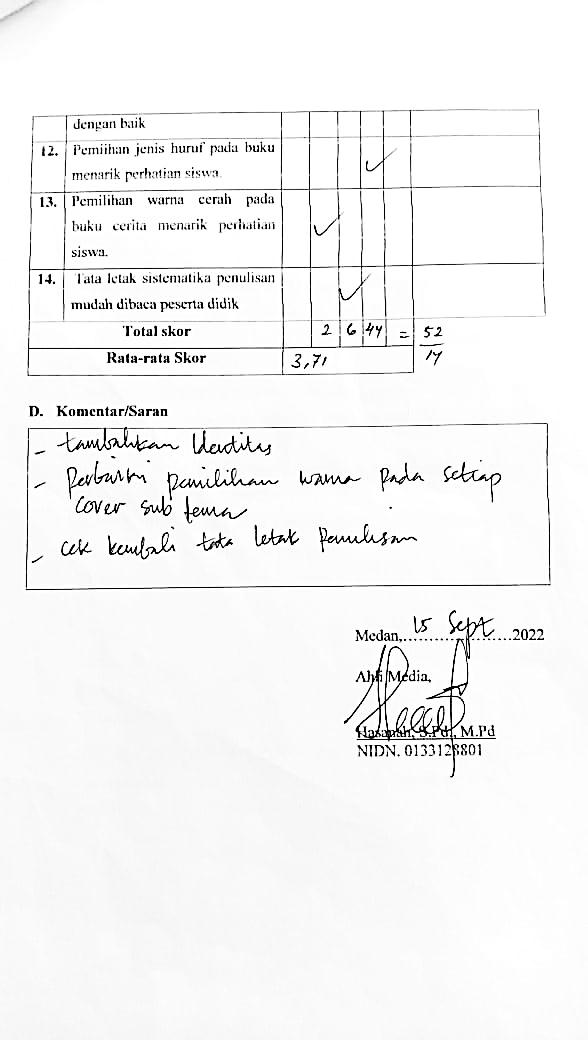 dengan baik
12. Pemiihan jenis huruf pada buku
menarik perhatian siswa.
13. Pemilihan warna cerah pada
buku cerita menarik perhatian
siswa.
14. Tata letak sistematika penulisan
mudah dibaca peserta didik
Total skor 2 6 44 = 52
Rata-rata Skor 3,71 14
D. Komentar/Saran
- tambahkan Identitas
- Perbaiki pemilihan warna pada setiap
cover sub tema
- cek kembali tata letak Penulisan
Medan,...15 Sept...2022
Ahli Media,
Hasanah, S.Pd., M.Pd
NIDN. 0133128801